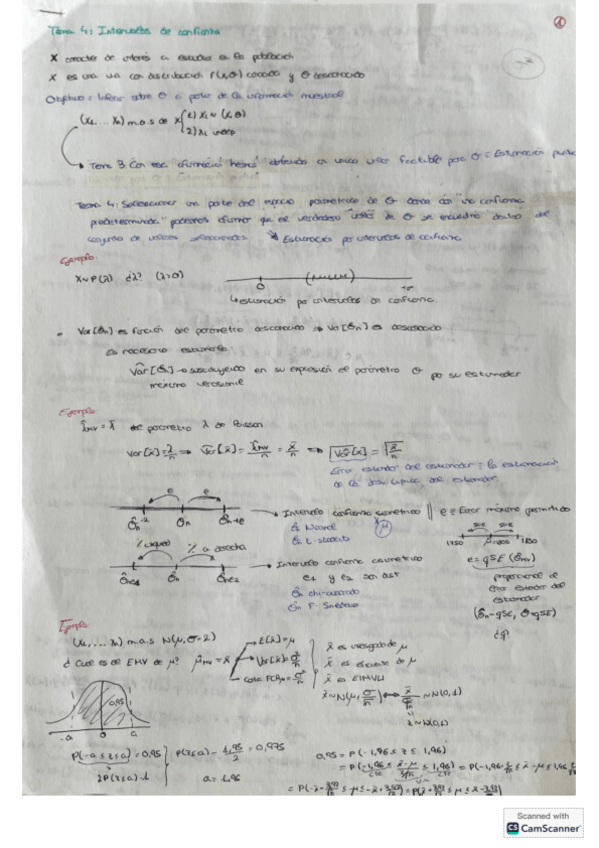 1
Tema 4: Intervalos de confianza
X caracter de interés a estudiar en la población
X es una va con distribución F(x,θ) conocida y θ desconocido
Objetivo = Inferir sobre θ a partir de la información muestral
(X₁, ... Xₙ) m.a.s de X { 1) Xᵢ ~ (X,θ)
2) Xᵢ indep
Tema 3: Con esa información hemos obtenido un único valor factible para θ = Estimación
Tema 4: Seleccionar una parte del espacio paramétrico de θ donde con "una confianza
predeterminada" podemos afirmar que el verdadero valor de θ se encuentra dentro del
conjunto de valores seleccionados ↘ Estimación por intervalos de confianza
Ejemplo:
X~P(λ) ¿λ? (λ>0)
0 +∞
↳ estimación por intervalos de confianza.
• Var[θ̂ₙ] es función del parámetro desconocido ⇒ Var[θ̂ₙ] es desconocido
Es necesario estimarlo:
Var̂[θ̂ₙ] → sustituyendo en su expresión el parámetro θ por su estimador
máximo verosímil
Ejemplo
λ̂ₘᵥ = x̄ del parámetro λ de Poisson
Var[x̄] = λ/n ⇒ Var̂[x̄] = λ̂ₘᵥ/n = x̄/n ⇒ √Var̂[x̄] = √(x̄/n)
Error estándar del estimador = la estimación
de la desv. típica del estimador.
e e
→ Intervalo confianza simétrico || e = Error máximo permitido
θ̂ₙ Normal μ
θ̂ₙ t-student
1750 1850
e = q SE (θ̂ₘᵥ)
% izquierda % a derecha
θ̂ₙe₁ θ̂ₙ θ̂ₙe₂
→ Intervalo confianza asimétrico
e₁ y e₂ son dist
θ̂ₙ chi-cuadrado
θ̂ₙ F-Snedecor
proporcional al
error estándar del
estimador
(θ̂ₙ-qSE, θ̂ₙ+qSE)
¿q?
Ejemplo
(X₁, ... Xₙ) m.a.s N(μ, σ=2)
¿Cual es el EMV de μ? μ̂ₘᵥ = x̄
E[x̄] = μ
Var[x̄] = σ²/n
Cota FCRμ = σ²/n
x̄ es insesgado de μ
x̄ es eficiente de μ
x̄ es EIMVU
x̄ ~ N(μ, σ/√n) ↔ ~ N(0,1)
z ~ N(0,1)
0,95
-a 0 a
P(-a ≤ z ≤ a) = 0,95
2P(z≤a)-1
P(z≤a) = 1,95/2 = 0,975
a = 1,96
0,95 = P(-1,96 ≤ z ≤ 1,96)
Scanned with
CS CamScanner